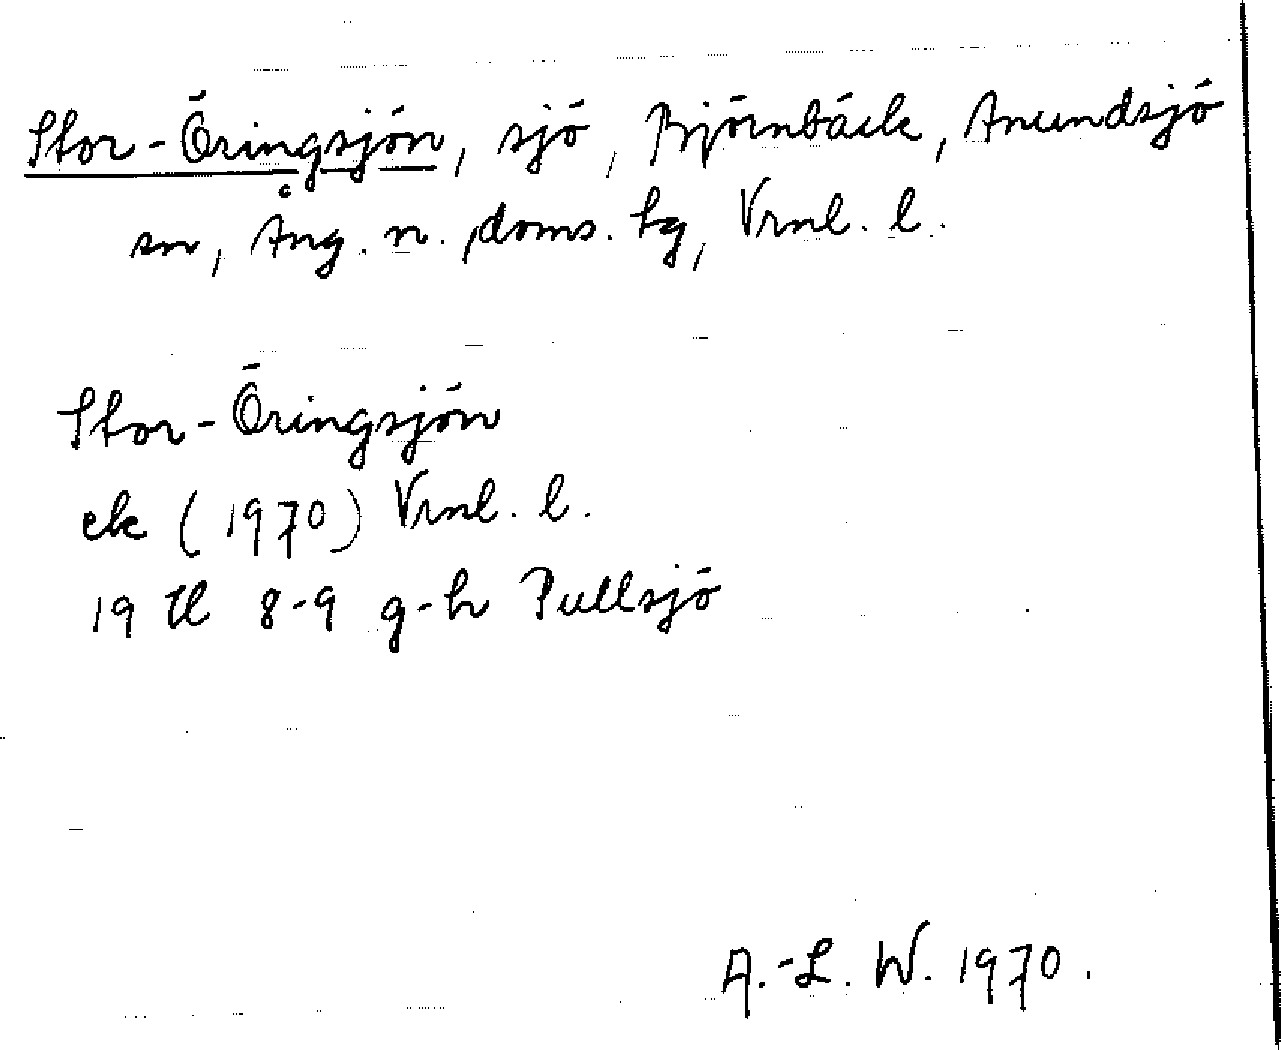 Stor-Öringsjön, sjö, Björnbäck, Anundsjö
sn, Ång. n. doms. hg, Vrnl. l.
Stor-Öringsjön
ek (1970) Vrnl. l.
19 H 8-9 g-h Pullsjö
A.-L. W. 1970.